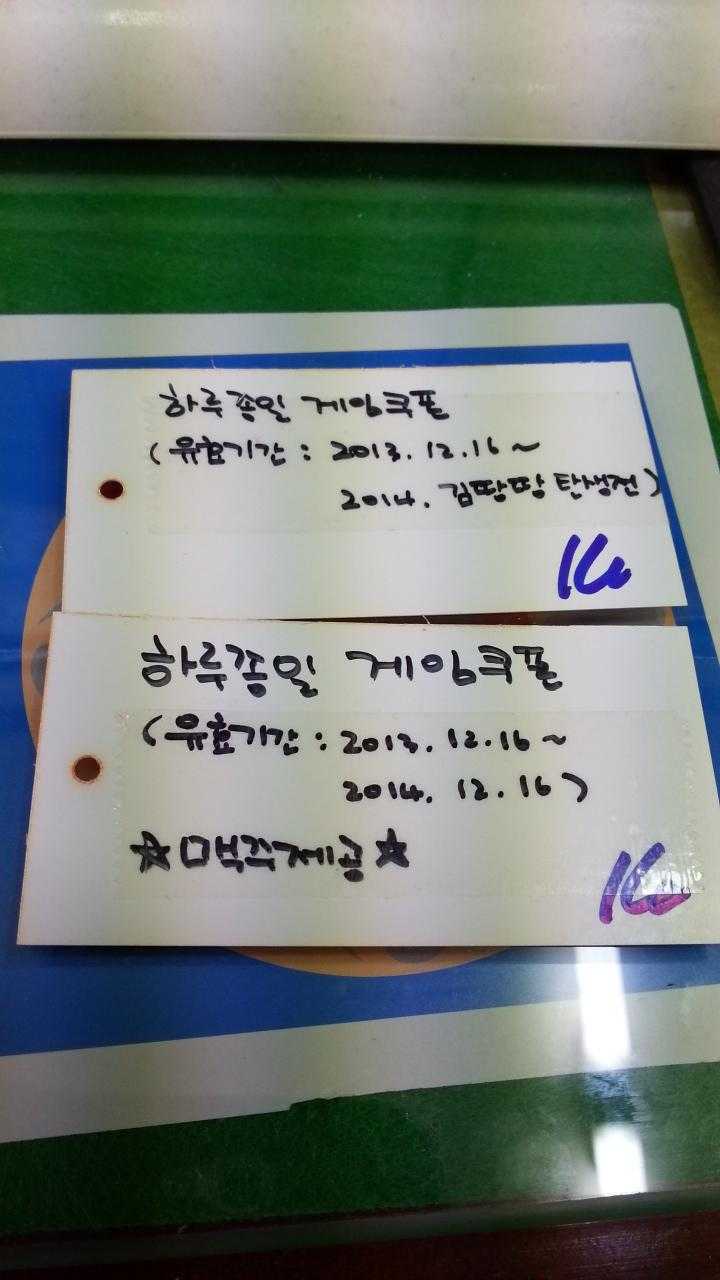 하루종일 게임쿠폰
(유효기간 : 2013. 12. 16 ~
2014. 김땅땅 탄생전)
하루종일 게임쿠폰
(유효기간 : 2013. 12. 16 ~
2014. 12. 16)
☆맥주제공☆